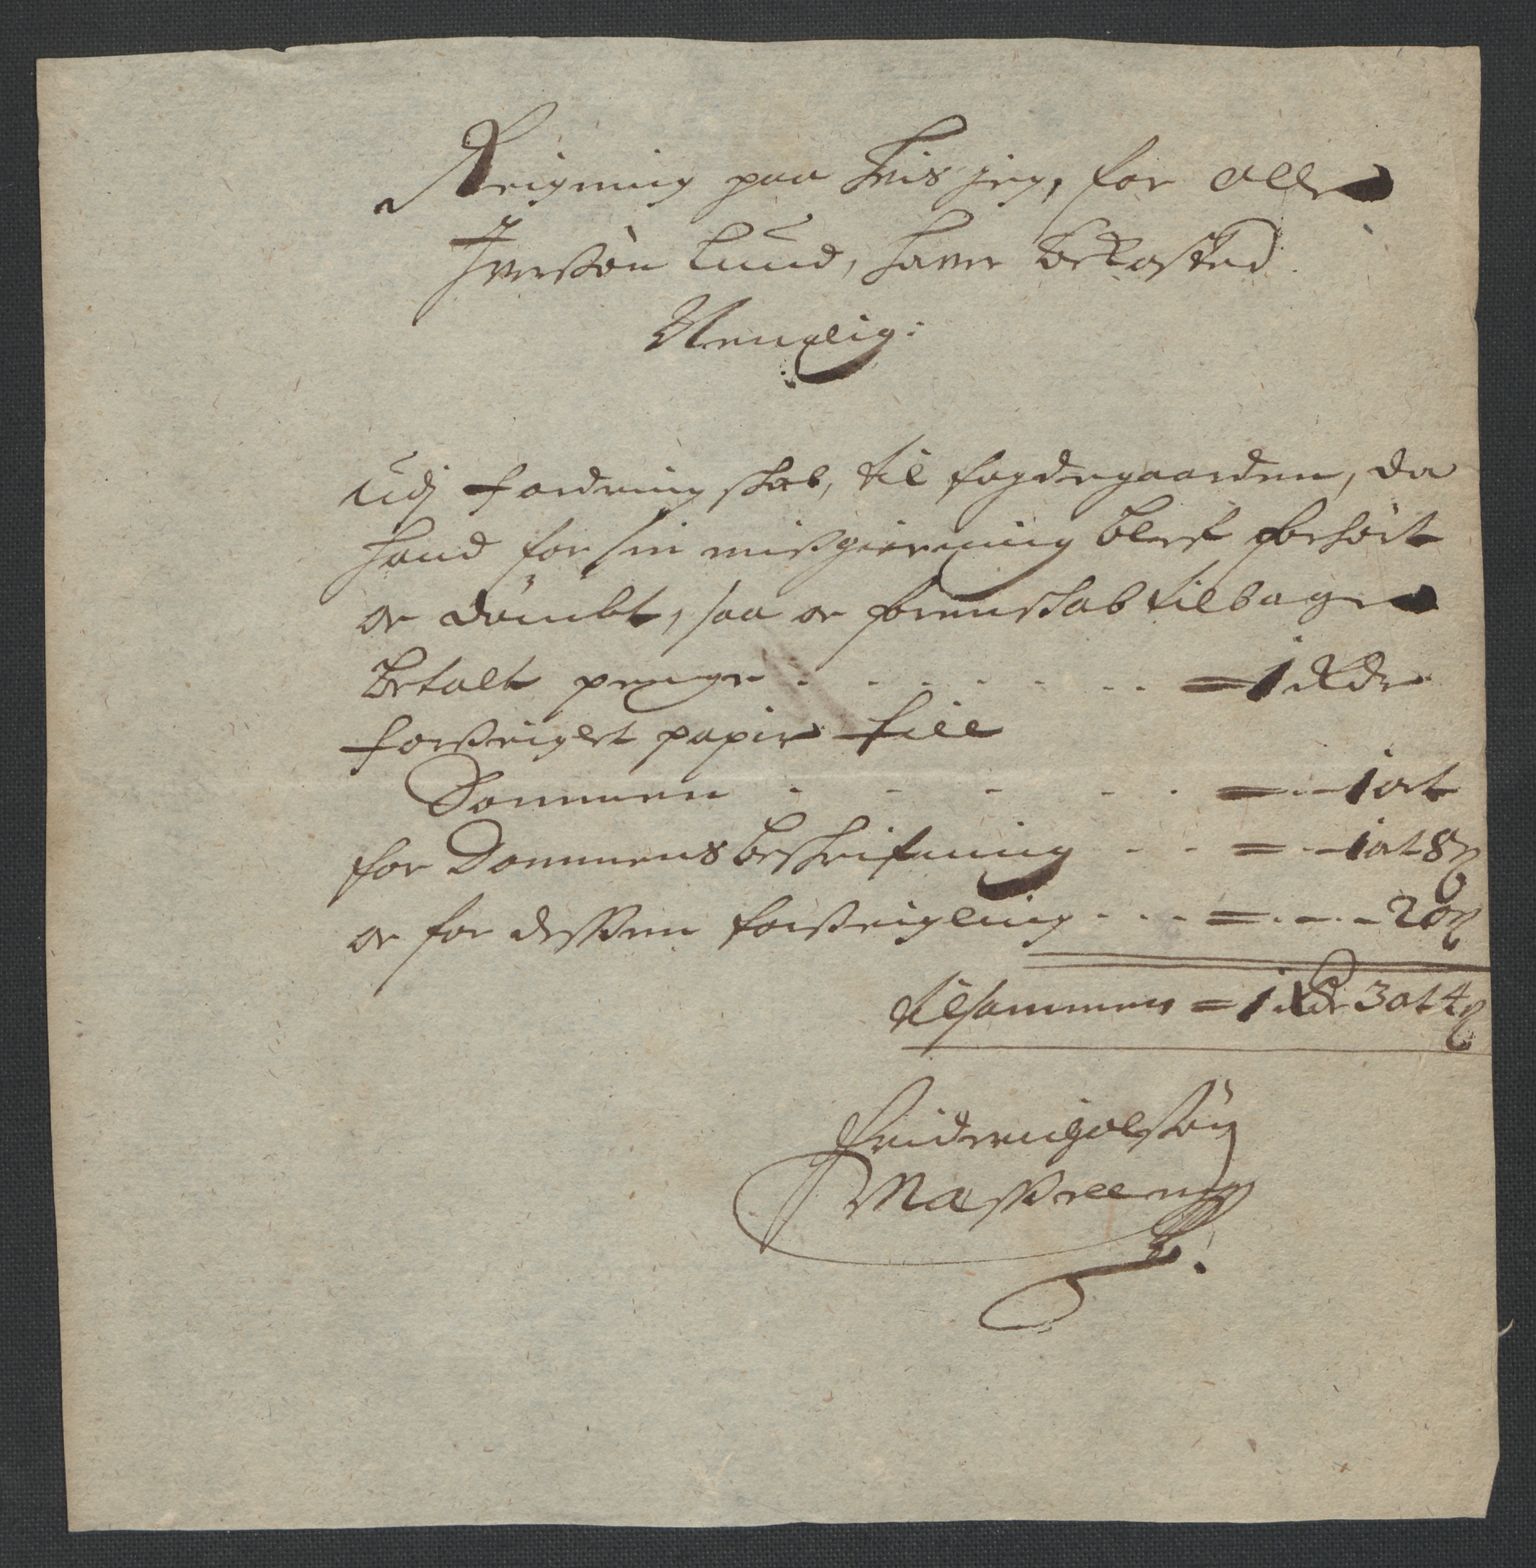 Reigning paa hvis jeg, for Olle
Iverssøn Lund, haver bekosted
Nemlig:
Udj fordringskab, til fogdegaarden, da
hand for sin misgierning blef forhört
oc dömbt, saa oc fremskab tilbage
betalt penge . . . . . . = 1 Rdr
forseiglet papir till
Dommen . . . . . = - 1 ort
for Dommens beskrifning . . = - 1 ort 8 ß
oc for dessen forseigling . . . = . - . - 20 ß
tilsammen = 1 Rdr 3 ort 4 ß